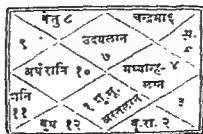 केतु ८
चन्द्रमा ६
९
उदयलग्न
७
अर्घरात्रि १०
मध्यान्ह- ४
लग्न
शनि
११
१ सू. मं.
अस्तलग्न
३
बुध १२
बृ. रा. २